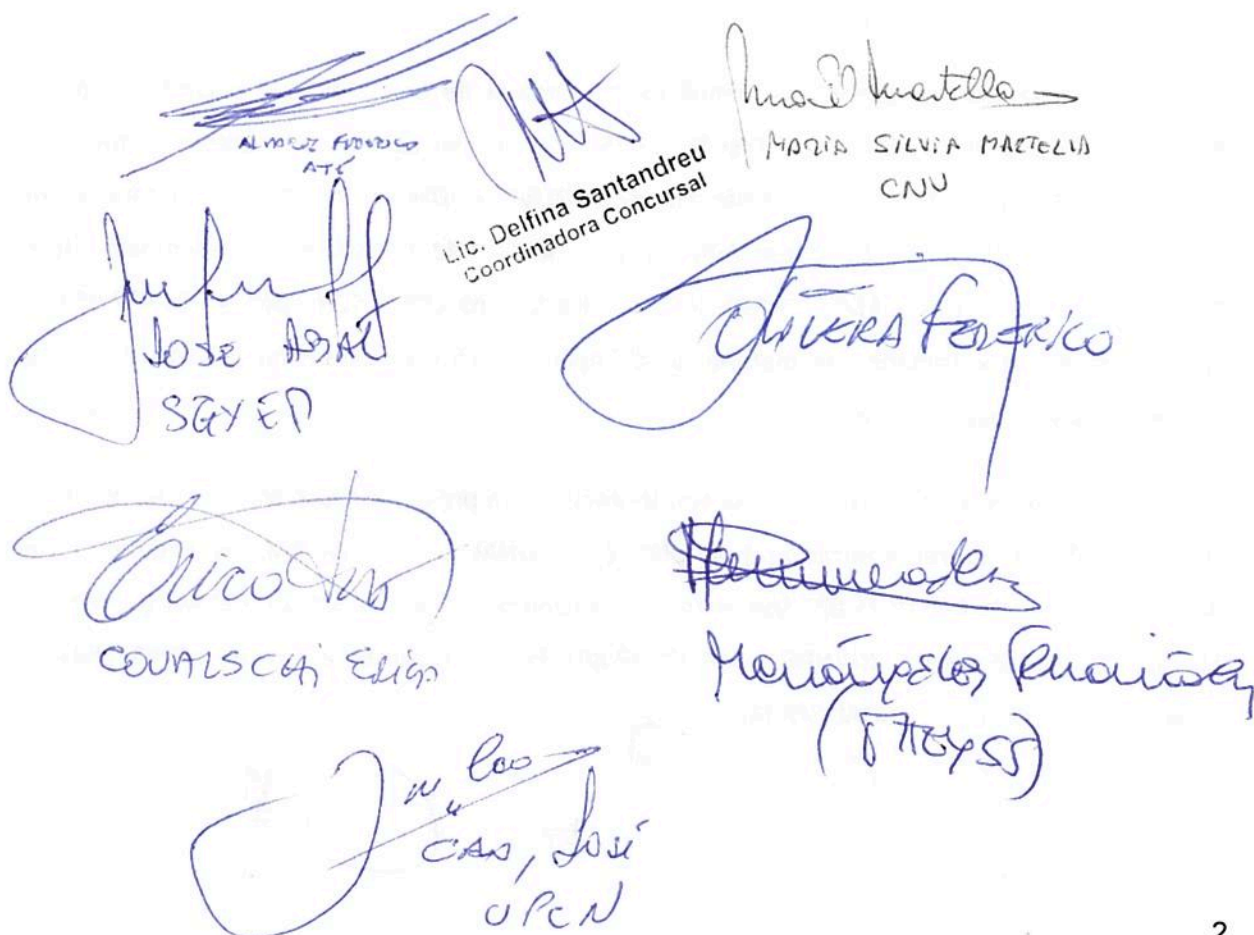 ALVAREZ FEDERICO
ATE
Lic. Delfina Santandreu
Coordinadora Concursal
MARIA SILVIA MARTELLA
CNV
JOSE
SGYEP
OLIVERA FEDERICO
COVALSCHI ERICA
(MTEYSS)
CAO, JOSÉ
UPCN
2